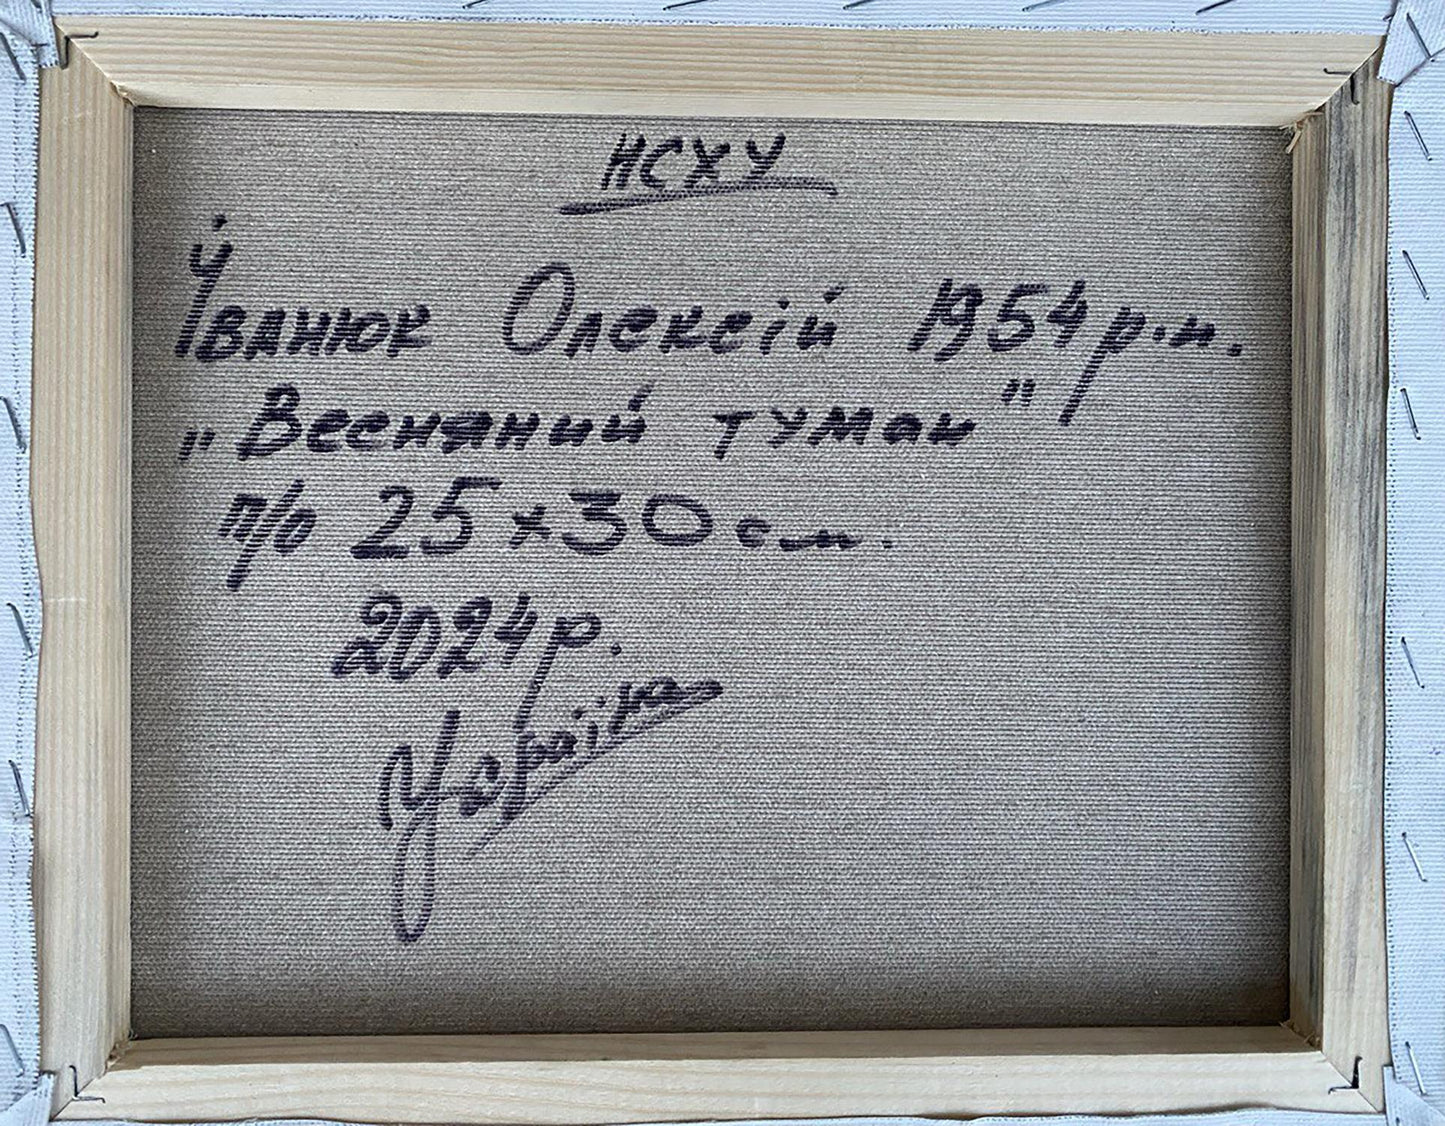 НСХУ
Іванюк Олексій 1954 р.н.
„Весняний туман"
п/о 25×30 см.
2024 р.
Україна